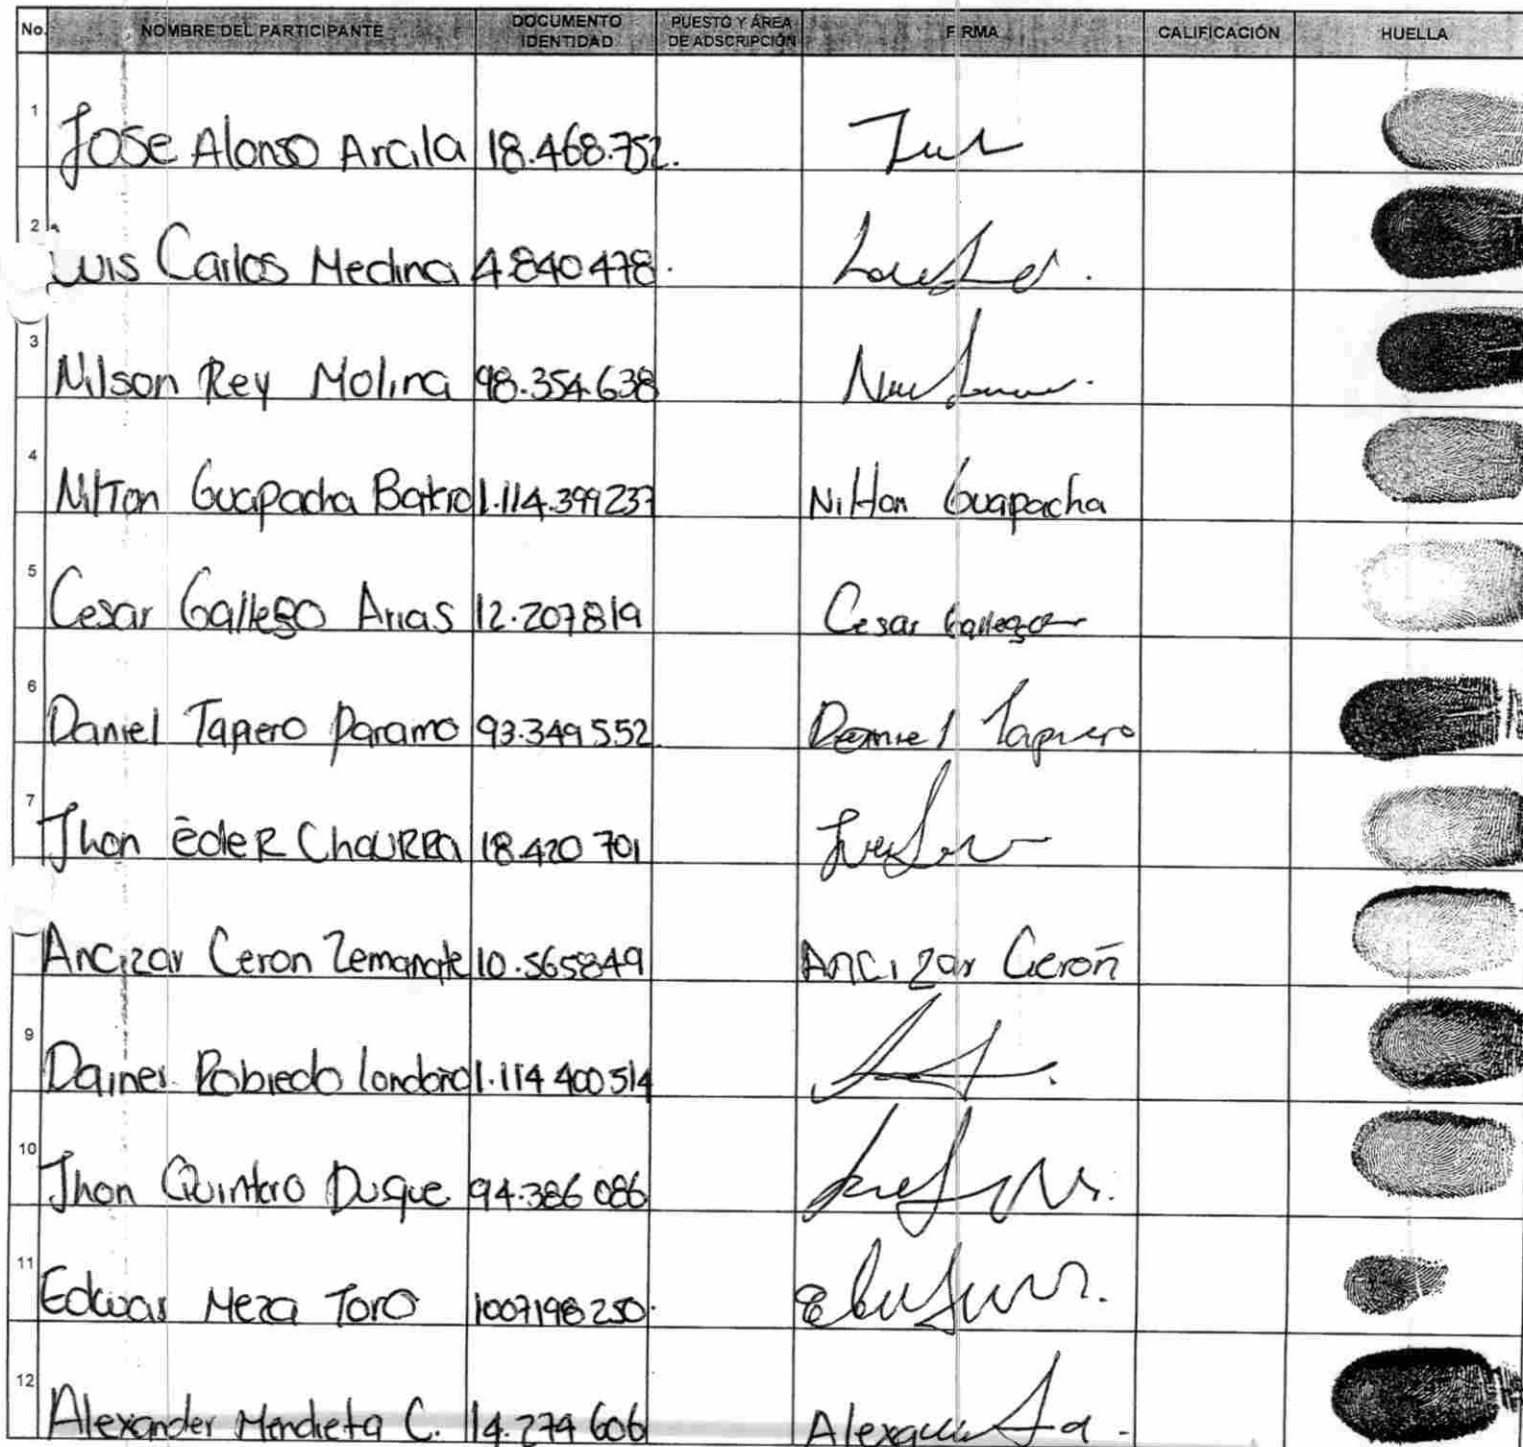 No. NOMBRE DEL PARTICIPANTE DOCUMENTO IDENTIDAD PUESTO Y ÁREA DE ADSCRIPCIÓN FIRMA CALIFICACIÓN HUELLA
1 Jose Alonso Arcila 18.468.752.
2 Luis Carlos Medina 4.840478.
3 Nilson Rey Molina 98.354.638
4 Nilton Guapacha Batro 1.114.399237 Nilton Guapacha
5 Cesar Gallego Arias 12.207819 Cesar Gallego
6 Daniel Tapiero Paramo 93.349552 Daniel Tapiero
7 Jhon EdeR ChauRRa 18.420 701
Ancizar Ceron Zemanate 10.565849 Ancizar Ceron
9 Dainer Robledo Londoño 1.114 400514
10 Jhon Quintero Duque 94.386 086
11 Edwar Meza Toro 1007198250.
12 Alexander Mendieta C. 14.274 606